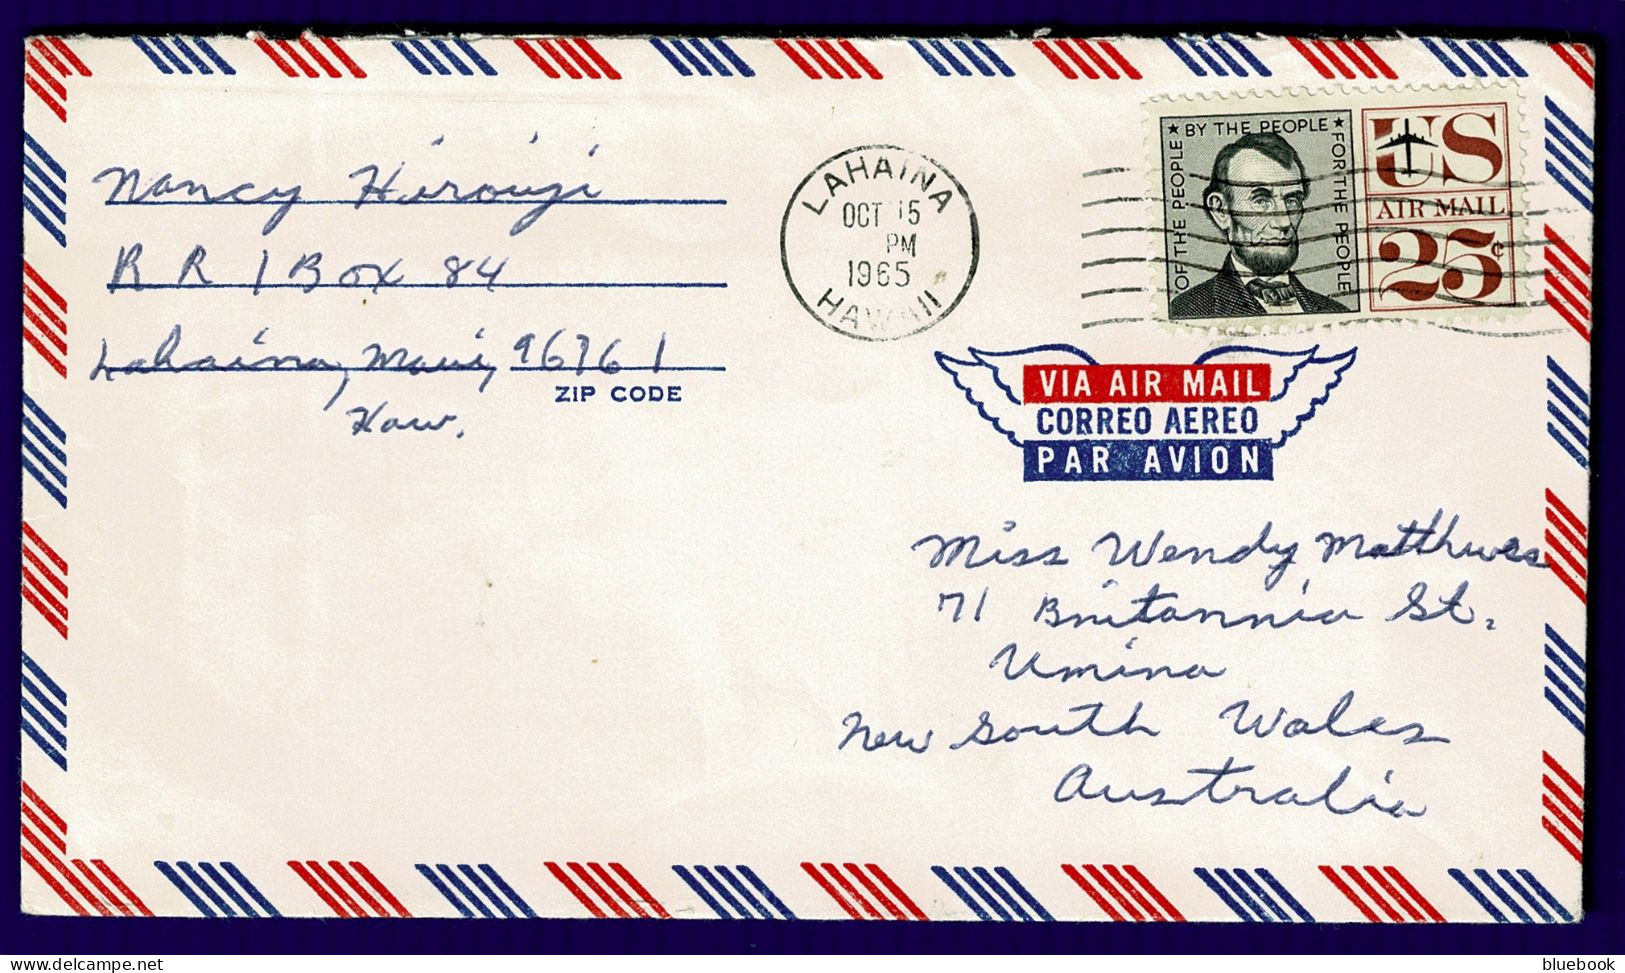 Nancy Hirouji
RR 1 Box 84
Lahaina, Maui, 96761
ZIP CODE
Haw.
LAHAINA
OCT 15
PM
1965
HAWAII
OF THE PEOPLE ★ BY THE PEOPLE ★ FOR THE PEOPLE
US
AIR MAIL
25c
VIA AIR MAIL
CORREO AEREO
PAR AVION
Miss Wendy Matthwes
71 Britannia St.
Umina
New South Wales
Australia
bluebook